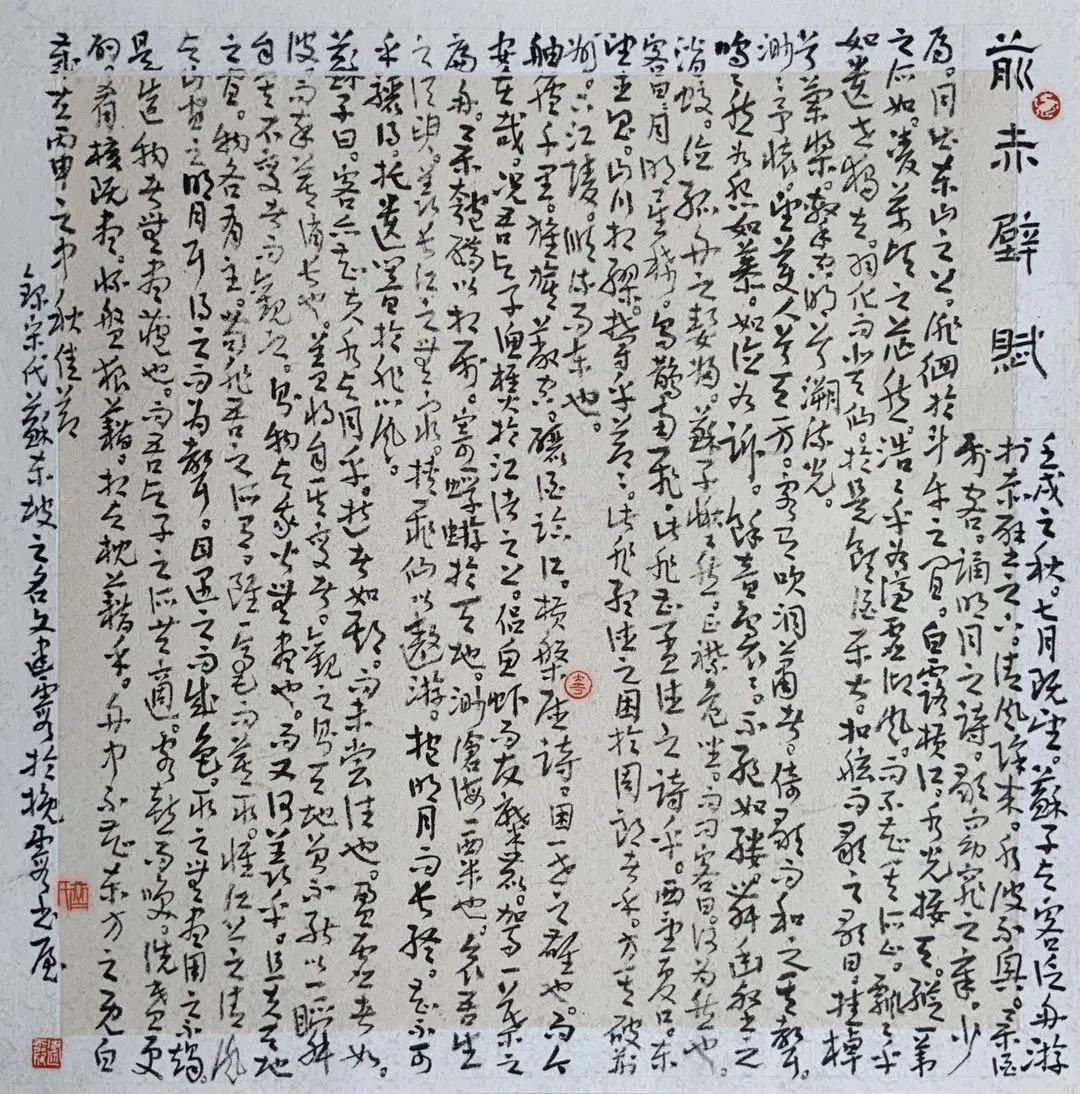 前赤壁賦
壬戌之秋。七月既望。蘇子与客泛舟游
於赤壁之下。清风徐来。水波不興。舉酒
屬客。誦明月之詩。歌窈窕之章。少
焉。月出東山之上。徘徊於斗牛之間。白露橫江。水光接天。縱一葦
之所如。凌萬頃之茫然。浩々乎如馮虛御風。而不知其所止。飄々乎
如遺世獨立。羽化而登仙。於是飲酒樂甚。扣舷而歌之。歌曰。桂棹
兮蘭槳。擊空明兮溯流光。
渺々兮予懷。望美人兮天一方。客有吹洞蕭者。倚歌而和之。其聲
嗚々然。如怨如慕。如泣如訴。餘音裊々。不絕如縷。舞幽壑之
潛蛟。泣孤舟之嫠婦。蘇子愀然。正襟危坐。而問客曰。何為其然也。
客曰。月明星稀。烏鵲南飛。此非曹孟德之詩乎。西望夏口。東
望武昌。山川相繆。鬱乎蒼々。此非孟德之困於周郎者乎。方其破荊
州。下江陵。順流而東也。
舳艫千里。旌旗蔽空。釃酒臨江。橫槊賦詩。固一世之雄也。而今
安在哉。況吾与子漁樵於江渚之上。侶魚蝦而友麋鹿。駕一葉之
扁舟。舉匏樽以相屬。寄蜉蝣於天地。渺滄海一粟也。哀吾生
之須臾。羨長江之無窮。挾飛仙以遨游。抱明月而長終。知不可
乎驟得。托遺響於悲風。
蘇子曰。客亦知夫水与月乎。逝者如斯。而未嘗往也。盈虛者如
彼。而卒莫消長也。蓋將自其變者。觀之則天地曾不能以一瞬。
自其不變者而觀之。則物与我皆無盡也。而又何羨乎。且夫天地
之間。物各有主。苟非吾之所有。雖一毫而莫取。惟江上之清風
与山間之明月。耳得之而為聲。目遇之而成色。取之無盡用之不竭。
是造物者無盡藏也。而吾与子之所共適。客喜而笑。洗盞更
酌。肴核既盡。杯盤狼藉。相与枕藉乎。舟中不知東方之既白
歲在丙申之中秋佳節
錄宋代蘇東坡之名文建霞於挽霞書屋